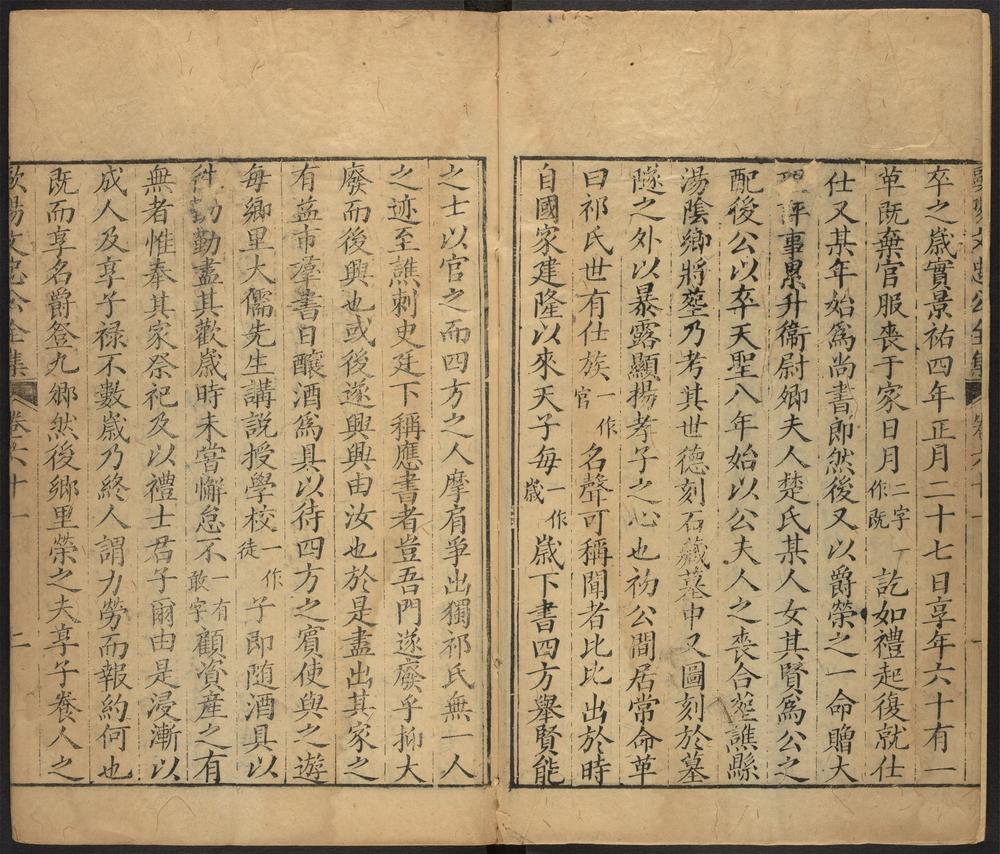 歐陽文忠公全集 卷六十一 一
卒之歲實景祐四年正月二十七日享年六十有一
革既棄官服喪于家日月二字一作既訖如禮起復就仕
仕又某年始爲尚書郎然後又以爵榮之一命贈大
理評事累升衞尉卿夫人楚氏某人女其賢爲公之
配後公以卒天聖八年始以公夫人之喪合塟譙縣
湯陰鄉將塟乃考其世德刻石藏墓中又圖刻於墓
隧之外以暴露顯揚孝子之心也初公閒居常命革
曰祁氏世有仕族一作官名聲可稱聞者比比出於時
自國家建隆以來天子每一作歲歲下書四方舉賢能
之士以官之而四方之人摩肩爭出獨祁氏無一人
之迹至譙刺史廷下稱應書者豈吾門遂廢乎抑大
廢而後興也或後遂興興由汝也於是盡出其家之
有益市羣書日釀酒爲具以待四方之賓使與之遊
每鄉里大儒先生講說授學校一作徒子即随酒具以
往勤盡其歡歲時未嘗懈怠不一有敢字顧資產之有
無者惟奉其家祭祀及以禮士君子爾由是浸漸以
成人及享子禄不數歲乃終人謂力勞而報約何也
既而享名爵登九卿然後鄉里榮之夫享子養人之
歐陽文忠公全集 卷六十一 二